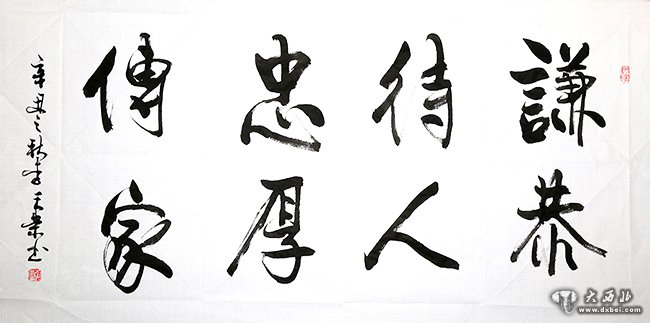 謙恭
待人
忠厚
傳家
辛丑之秋李天業书
大西北
www.dxbei.com